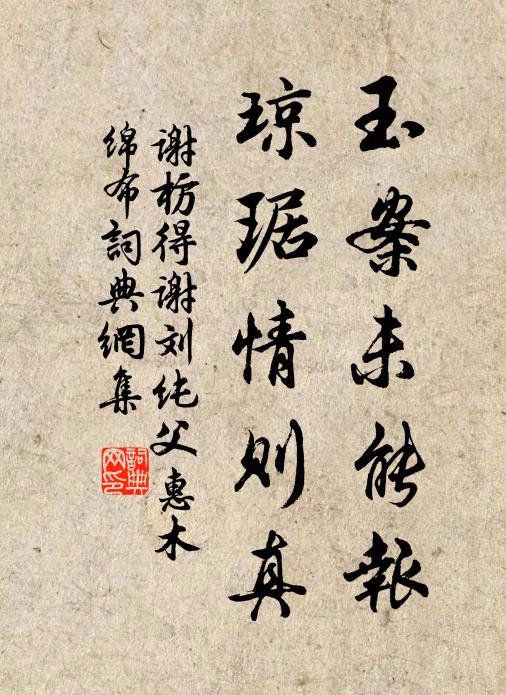 玉案未能報
琼琚情则真
谢枋得谢刘纯父惠木
绵布詞典網集
詞典网印